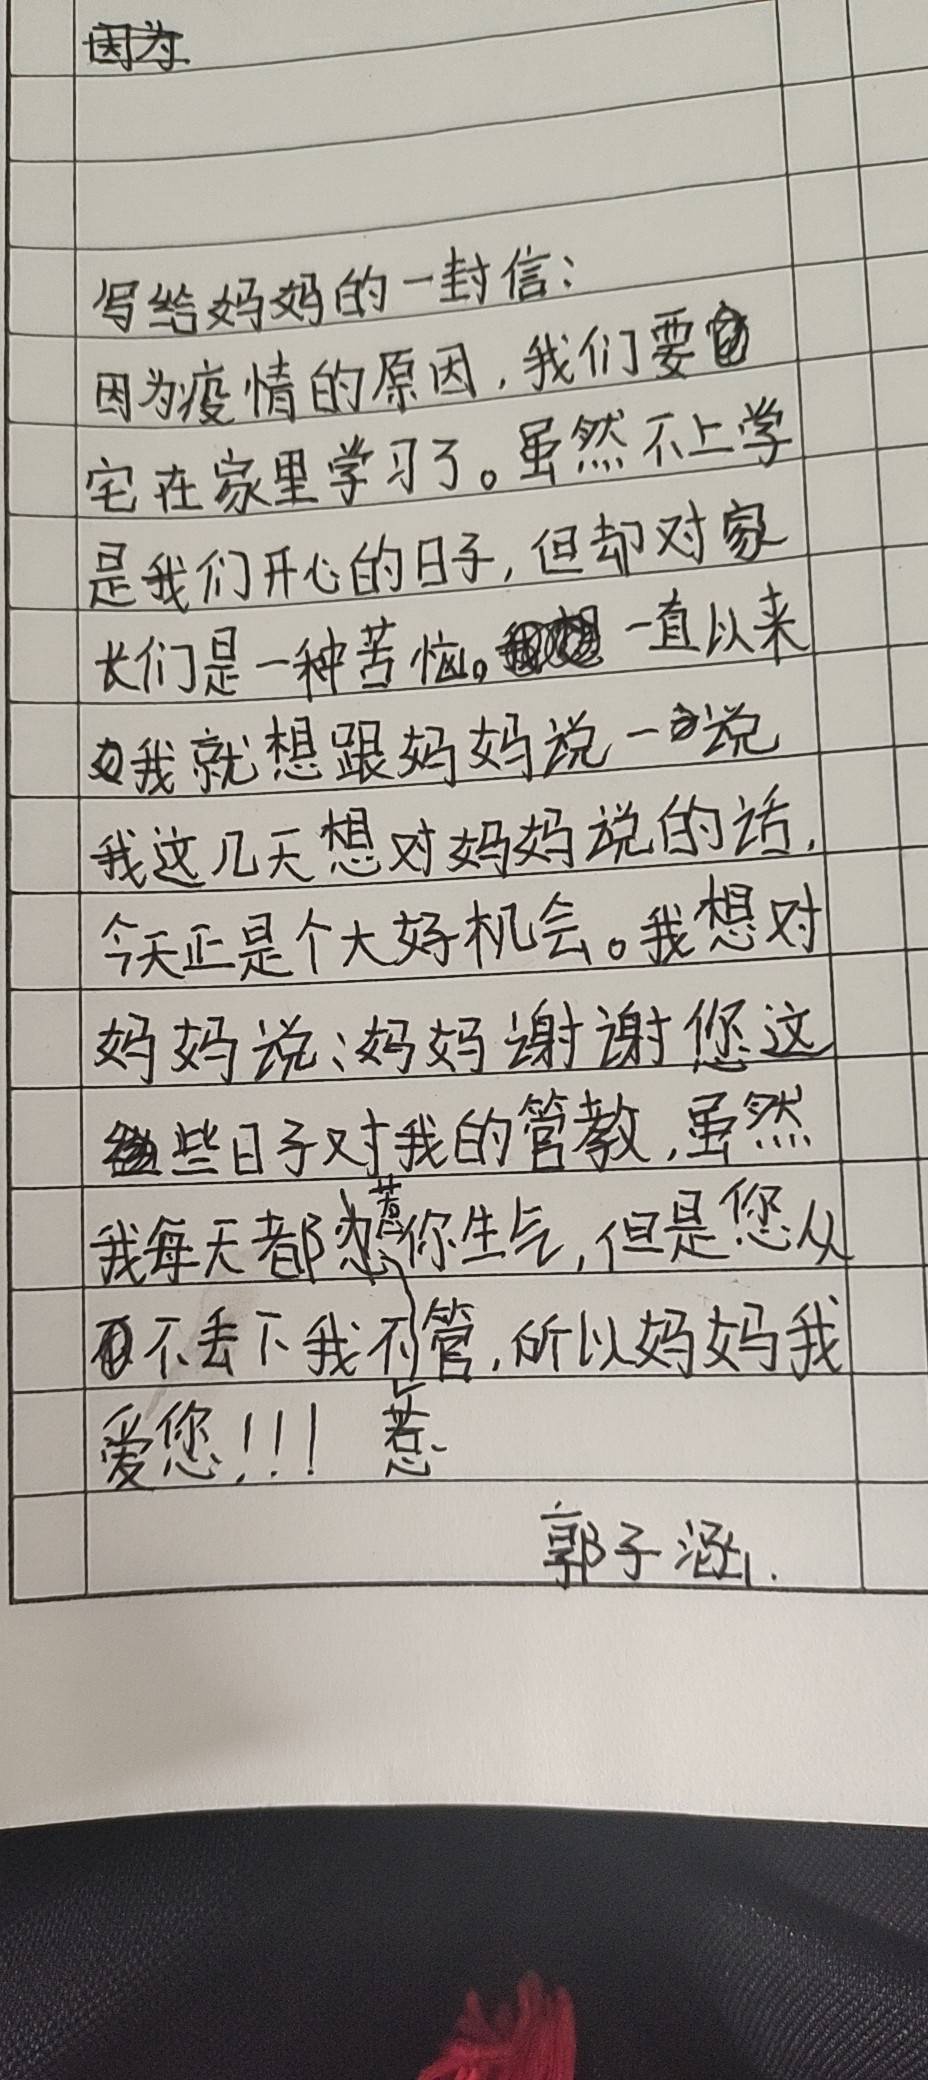 因为
写给妈妈的一封信：
因为疫情的原因，我们要
宅在家里学习了。虽然不上学
是我们开心的日子，但却对家
长们是一种苦恼。一直以来
我就想跟妈妈说一说
我这几天想对妈妈说的话，
今天正是个大好机会。我想对
妈妈说：妈妈谢谢您这
些日子对我的管教，虽然
我每天都惹你生气，但是您从
不丢下我不管，所以妈妈我
爱您！！！ 惹
郭子涵.